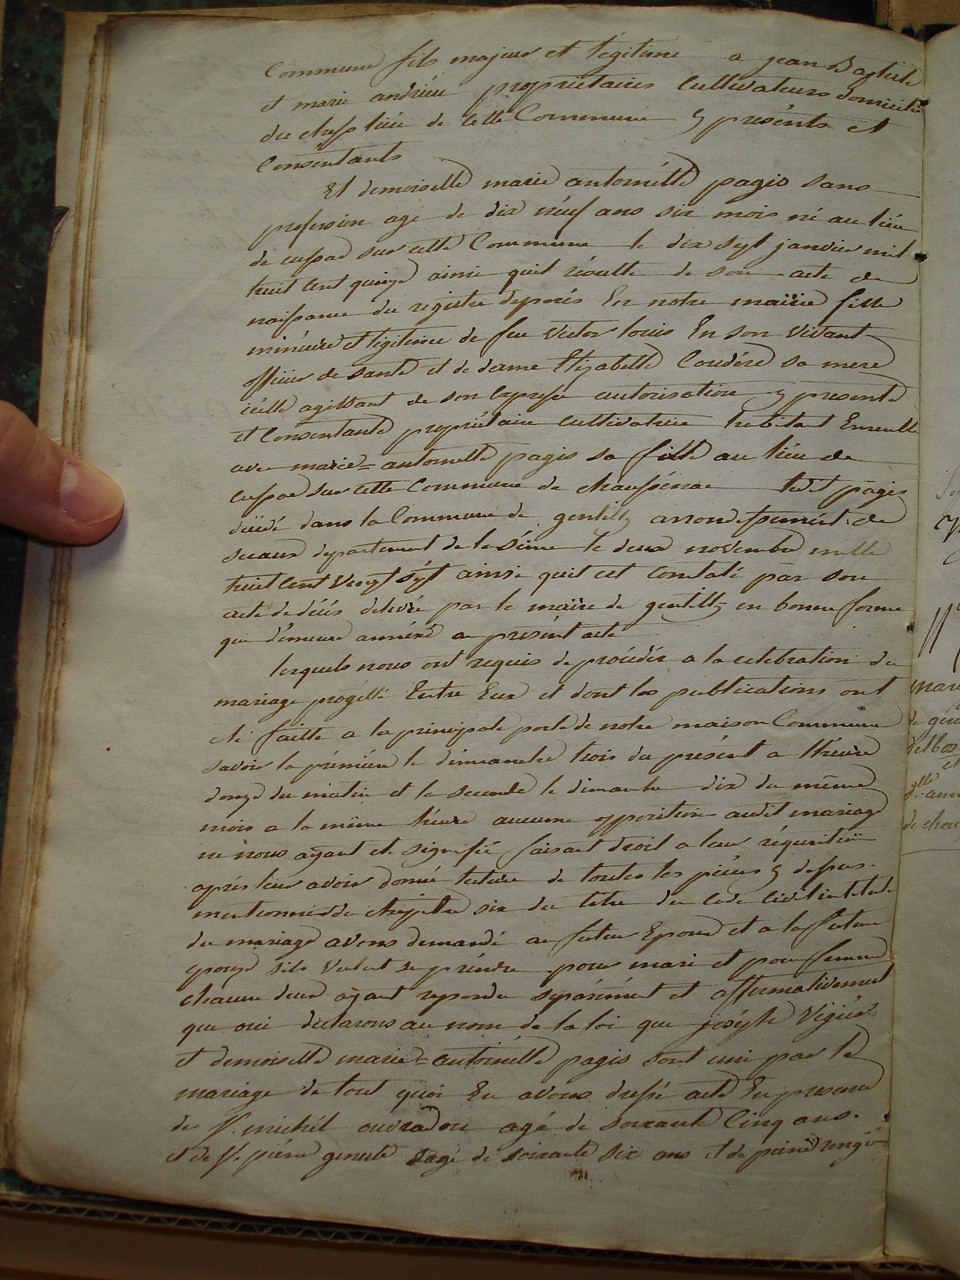 Commune fils majeur et légitime a jean Baptiste
et marie andrieu propriétaires cultivateurs domicilié
du chef lieu de cette Commune y présents et
Consentants
Et demoiselle marie antoinette pagis sans
profession agé de dix neuf ans six mois né au lieu
de cussac sur cette Commune le dix sept janvier mil
huit cent quinze ainsi quil résulte de son acte de
naissance du registre déposés En notre mairie fille
mineure et légitime de feu victor louis En son vivant
officier de santé et de dame Elizabette Coudére sa mere
icelle agissant de son expresse autorisation y presente
et Consentante propriétaire cultivatrice habitant Ensemble
avec marie-antoinette pagis sa fille au lieu de
cussac sur cette Commune de chaussenac ledit pagis
décédé dans la Commune de gentilly arrondissement de
sceaux département de la séine le deux novembre mille
huit cent vingt sept ainsi quil est constaté par son
acte de décés délivré par le maire de gentilly en bonne forme
qui démeure annéxé au présént acte
lesquels nous ont requis de procéder a la celebration du
mariage projetté Entre Eux et dont les publications ont
été faitte a la principale porte de notre maison Commune
savoir la prémiere le dimanche trois du présent a lheure
de du matin et la seconde le dimanche dix du même
mois a la même heure aucune opposition audit mariage
ne nous ayant été signifié faisant droit a leur réquisition
aprés leur avoir donné lecture de toutes les piéces y dessus
mentionnés du chapitre six du titre du code civil intitulé
du mariage avons demandé au futur Epoux et a la future
épouse sils veulent se prendre pour mari et pour femme
chacun deux ayant repondu séparément et affirmativement
que oui déclarons au nom de la loi que joséph Vigier
et demoiselle marie-antoinette pagis sont uni par le
mariage de tout quoi En avons dressé acte En presence
de S. michel ouvradou agé de soixante Cinq ans.
et de S. piérre agé de soixante six ans et de pierre rongié